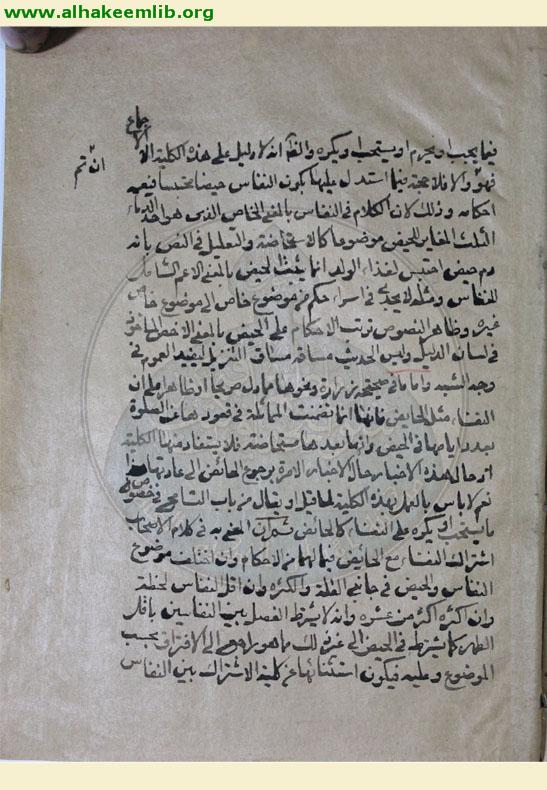 www.alhakeemlib.org
الاجماع
فيما يجب او يحرم او يستحب او يكره والقا انه لا دليل على هذه الكلية الا
ان تم
فهو والا فلا حجة فيما استدل عليها بكون النفاس حيضا محتبسا فيعمه
احكامه وذلك لان الكلام في النفاس بالمعنى الخاص الذى هو احد الدماء
الثلث المغاير للحيض موضوعا كالاستحاضة والتعليل في النص بانه
دم حيض احتبس لغذاء الولد انما يثبت الحيض بالمعنى الاعم الشامل
للنفاس ومثله لا يجدى في اسراء حكم من موضوع خاص الى موضوع خاص
غيره وظاهر النصوص ترتب الاحكام على الحيض بالمعنى الاخص
في لسان الدليل وليس الحديث مساقه مساق التنزيل ليفيد العموم في
وجه الشبه واما ما في صحيحة زرارة ونحوها مما دل صريحا او ظاهرا على ان
النفساء مثل الحايض فانها انما تضمنت المماثلة في قعودها عن الصلوة
بعدد ايامها في الحيض وانها بعدها مستحاضة فلا يستفاد منها الكلية
اذ حال هذه الاخبار حال الاخبار الامرة برجوع الحائض الى عادتها هذا
نعم لا باس بالعمل بهذه الكلية لما قيل ويقال من باب التسامح في خصوص
ما يستحب او يكره على النفساء كالحائض ثم ان المعنى به في كلام الاصحاب
اشتراك النفساء مع الحايض فيما لهما من الاحكام وان اختلف موضوع
النفاس والحيض في جانبي القلة والكثرة وان اقل النفاس لحظة
وان اكثره اكثر من عشره وانه لا يشترط الفصل بين النفاسين باقل
الطهر كما يشترط في الحيض الى غير ذلك مما هو راجع الى الافتراق بحسب
الموضوع وعليه فيكون استثنائها عن كلية الاشتراك بين النفاس